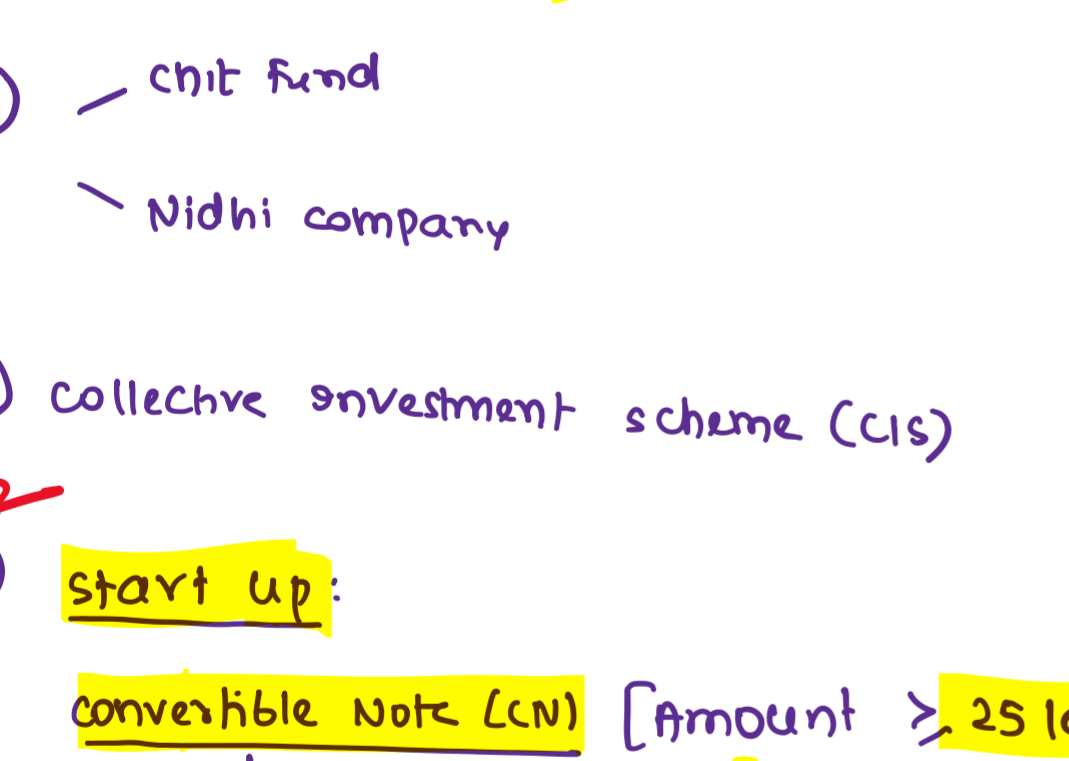 Chit Fund
Nidhi company
collective Investment scheme (CIS)
start up:
convertible Note (CN) [Amount ≥ 25